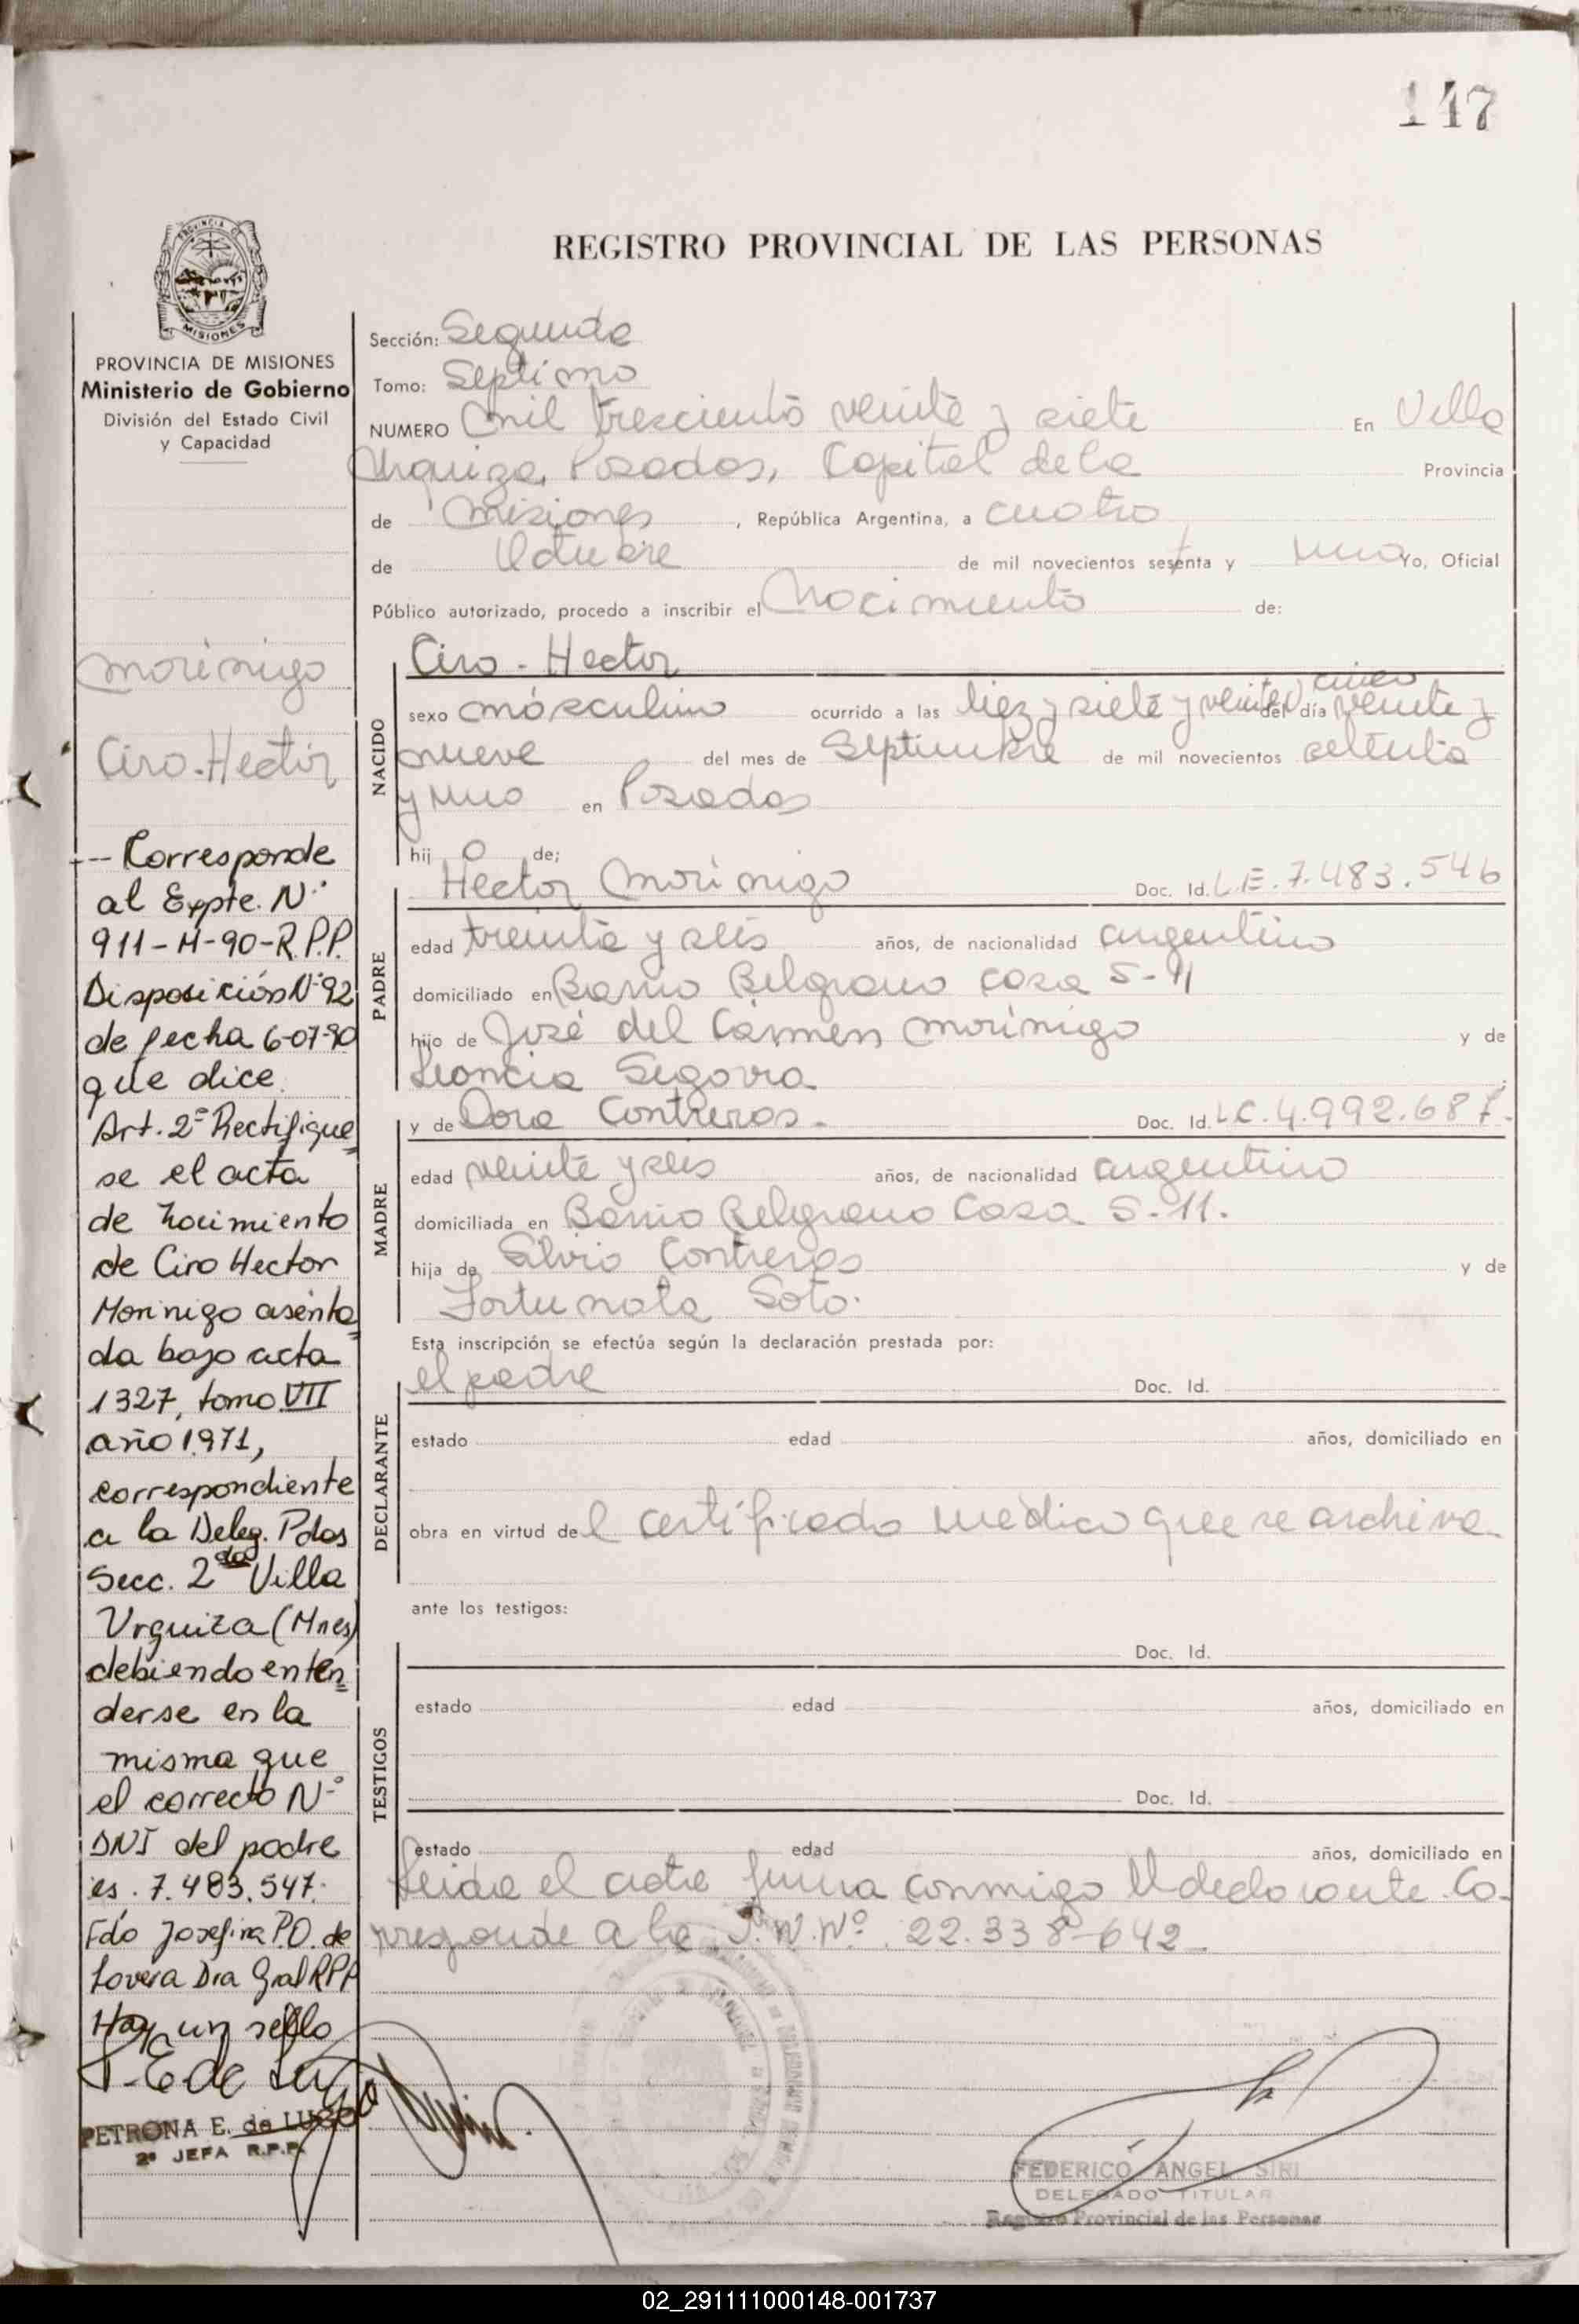 147
REGISTRO PROVINCIAL DE LAS PERSONAS
PROVINCIA DE
MISIONES
PROVINCIA DE MISIONES
Ministerio de Gobierno
División del Estado Civil
y Capacidad
Morinigo
Ciro-Hector
--- Corresponde
al Expte. Nº
911-M-90-R.P.P.
Disposición Nº 92
de fecha 6-07-90
que dice
Art. 2º Rectifique=
se el acta
de Nacimiento
de Ciro Hector
Morinigo asenta=
da bajo acta
1327, tomo VII
año 1971,
correspondiente
a la Deleg. Pdas
Secc. 2da Villa
Urquiza (Mnes)
debiendo enten=
derse en la
misma que
el correcto Nº
DNI del padre
es. 7.483.547.
Fdo Josefina P.O. de
Lovera Dra Gral RPP
Hay un sello
P. E de Lugo
PETRONA E. de LUGO
2ª JEFA R.P.P.
Sección: Segunda
Tomo: Septimo
NUMERO Mil trescientos veinte y siete En Villa
Urquiza, Posadas, Capital de la Provincia
de Misiones, República Argentina, a cuatro
de Octubre de mil novecientos sesenta y uno Yo, Oficial
Público autorizado, procedo a inscribir el Nacimiento de:
NACIDO
Ciro - Hector
sexo másculino ocurrido a las diez y siete y veinte cinco del día veinte y
nueve del mes de Septiembre de mil novecientos setenta
y uno en Posadas
hijo de;
PADRE
Hector Morinigo Doc. Id. L.E. 7.483.546
edad treinta y seis años, de nacionalidad argentino
domiciliado en Barrio Belgrano casa S-11
hijo de José del Carmen Morinigo y de
Leoncia Segovia
MADRE
y de Dora Contreras. Doc. Id. L.C. 4.992.687.-
edad veinte y seis años, de nacionalidad argentino
domiciliada en Barrio Belgrano Casa S-11.
hija de Silvio Contreras y de
Fortunata Soto.
Esta inscripción se efectúa según la declaración prestada por:
DECLARANTE
el padre Doc. Id.
estado edad años, domiciliado en
obra en virtud del certificado médico que se archiva.
ante los testigos:
TESTIGOS
Doc. Id.
estado edad años, domiciliado en
Doc. Id.
estado edad años, domiciliado en
Leida el acta firma conmigo el declarante. Co-
rresponde a la N.Nº. 22.338-642
FEDERICO ANGEL SIRI
DELEGADO TITULAR
Registro Provincial de las Personas
02_291111000148-001737